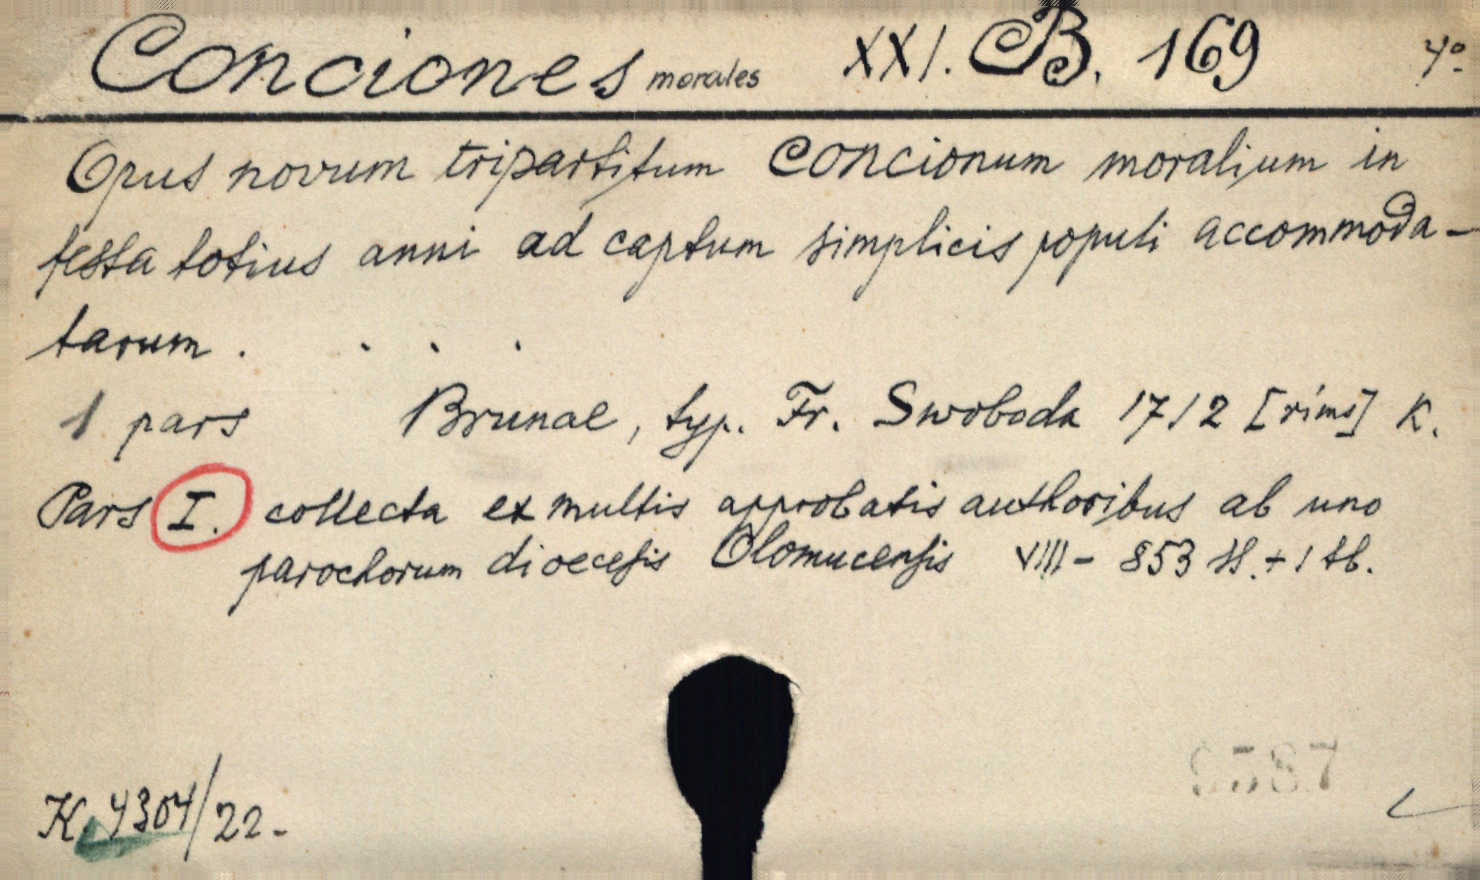 Conciones morales XXI. B. 169 4º
Opus novum tripartitum Concionum moralium in
festa totius anni ad captum simplicis populi accommoda-
tarum . . . .
1 pars Brunae, typ. Fr. Swoboda 1712 [říms] K.
Pars I. collecta ex multis approbatis authoribus ab uno
parochorum dioecesis Olomucensis VIII - 853 ss. + 1 tb.
K. 4304/22.